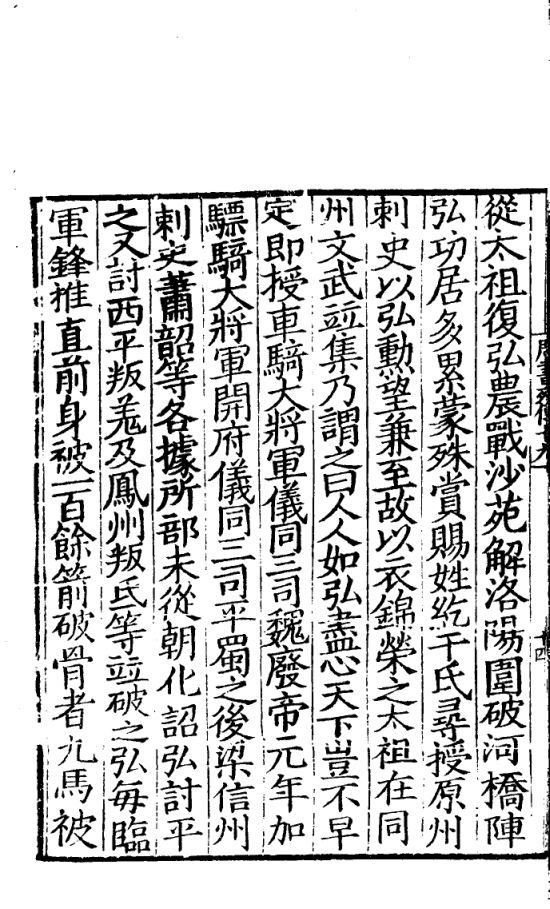 從太祖復弘農戰沙苑解洛陽圍破河橋陣
弘功居多累蒙殊賞賜姓紇干氏尋授原州
刺史以弘勲望兼至故以衣錦榮之太祖在同
州文武竝集乃謂之曰人人如弘盡心天下豈不早
定即授車騎大將軍儀同三司魏廢帝元年加
驃騎大將軍開府儀同三司平蜀之後梁信州
刺史蕭韶等各據所部未從朝化詔弘討平
之又討西平叛羌及鳳州叛氐等竝破之弘每臨
軍鋒推直前身被一百餘箭破骨者九馬被